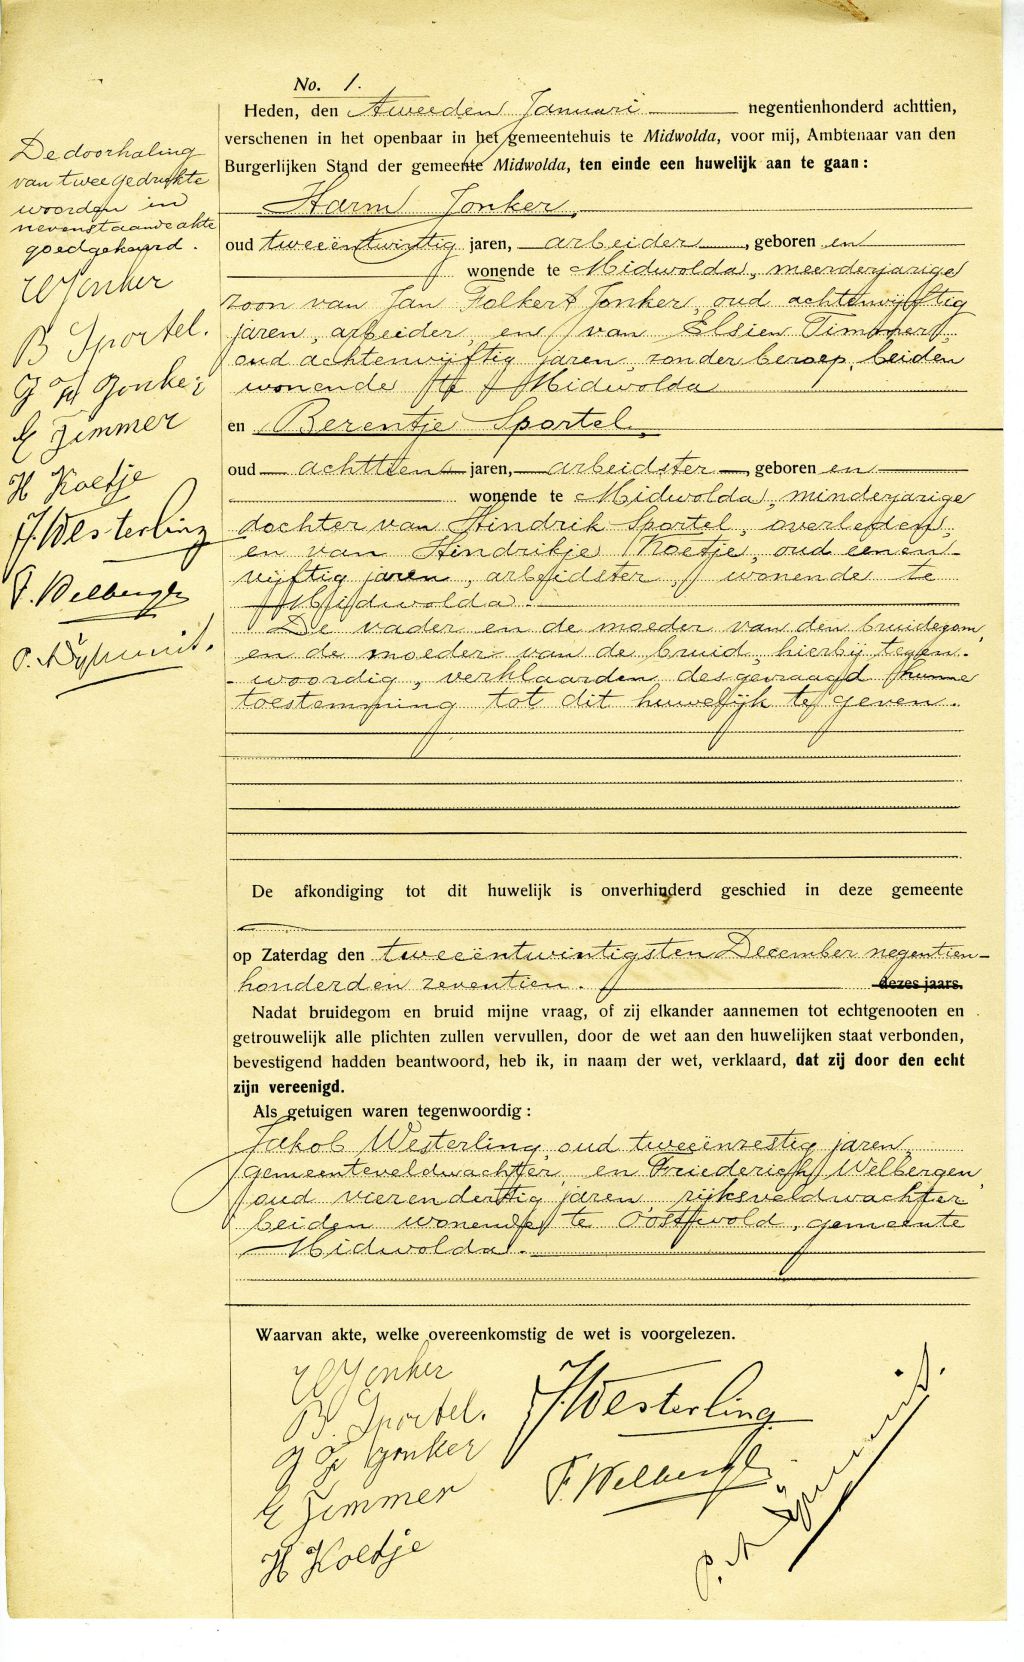 No. 1.
Heden, den tweeden Januari negentienhonderd achttien,
verschenen in het openbaar in het gemeentehuis te Midwolda, voor mij, Ambtenaar van den
Burgerlijken Stand der gemeente Midwolda, ten einde een huwelijk aan te gaan:
Harm Jonker,
oud tweeëntwintig jaren, arbeider, geboren en
wonende te Midwolda, meerderjarige
zoon van Jan Folkert Jonker, oud achtenvijftig
jaren, arbeider, en van Elsien Timmer,
oud achtenvijftig jaren, zonder beroep, beiden
wonende te Midwolda
en Berentje Sportel,
oud achttien jaren, arbeidster, geboren en
wonende te Midwolda, minderjarige
dochter van Hindrik Sportel, overleden,
en van Hindrikje Koetje, oud eenen-
vijftig jaren, arbeidster, wonende te
Midwolda.
De vader en de moeder van den bruidegom,
en de moeder van de bruid, hierbij tegen-
woordig, verklaarden desgevraagd hunne
toestemming tot dit huwelijk te geven.
De afkondiging tot dit huwelijk is onverhinderd geschied in deze gemeente
op Zaterdag den tweeëntwintigsten December negentien-
honderd en zeventien. dezes jaars.
Nadat bruidegom en bruid mijne vraag, of zij elkander aannemen tot echtgenooten en
getrouwelijk alle plichten zullen vervullen, door de wet aan den huwelijken staat verbonden,
bevestigend hadden beantwoord, heb ik, in naam der wet, verklaard, dat zij door den echt
zijn vereenigd.
Als getuigen waren tegenwoordig:
Jakob Westerling, oud tweeënzestig jaren,
gemeenteveldwachter, en Friederich Welbergen,
oud vierendertig jaren, rijksveldwachter
beiden wonende te Oostwold, gemeente
Midwolda.
Waarvan akte, welke overeenkomstig de wet is voorgelezen.
H Jonker
B Sportel.
J F Jonker
E Timmer
H Koetje
J. Westerling
F. Welbergen
De doorhaling
van twee gedrukte
woorden in
nevenstaande akte
goedgekeurd.
H Jonker
B Sportel.
J F Jonker
E Timmer
H Koetje
J. Westerling
F. Welbergen